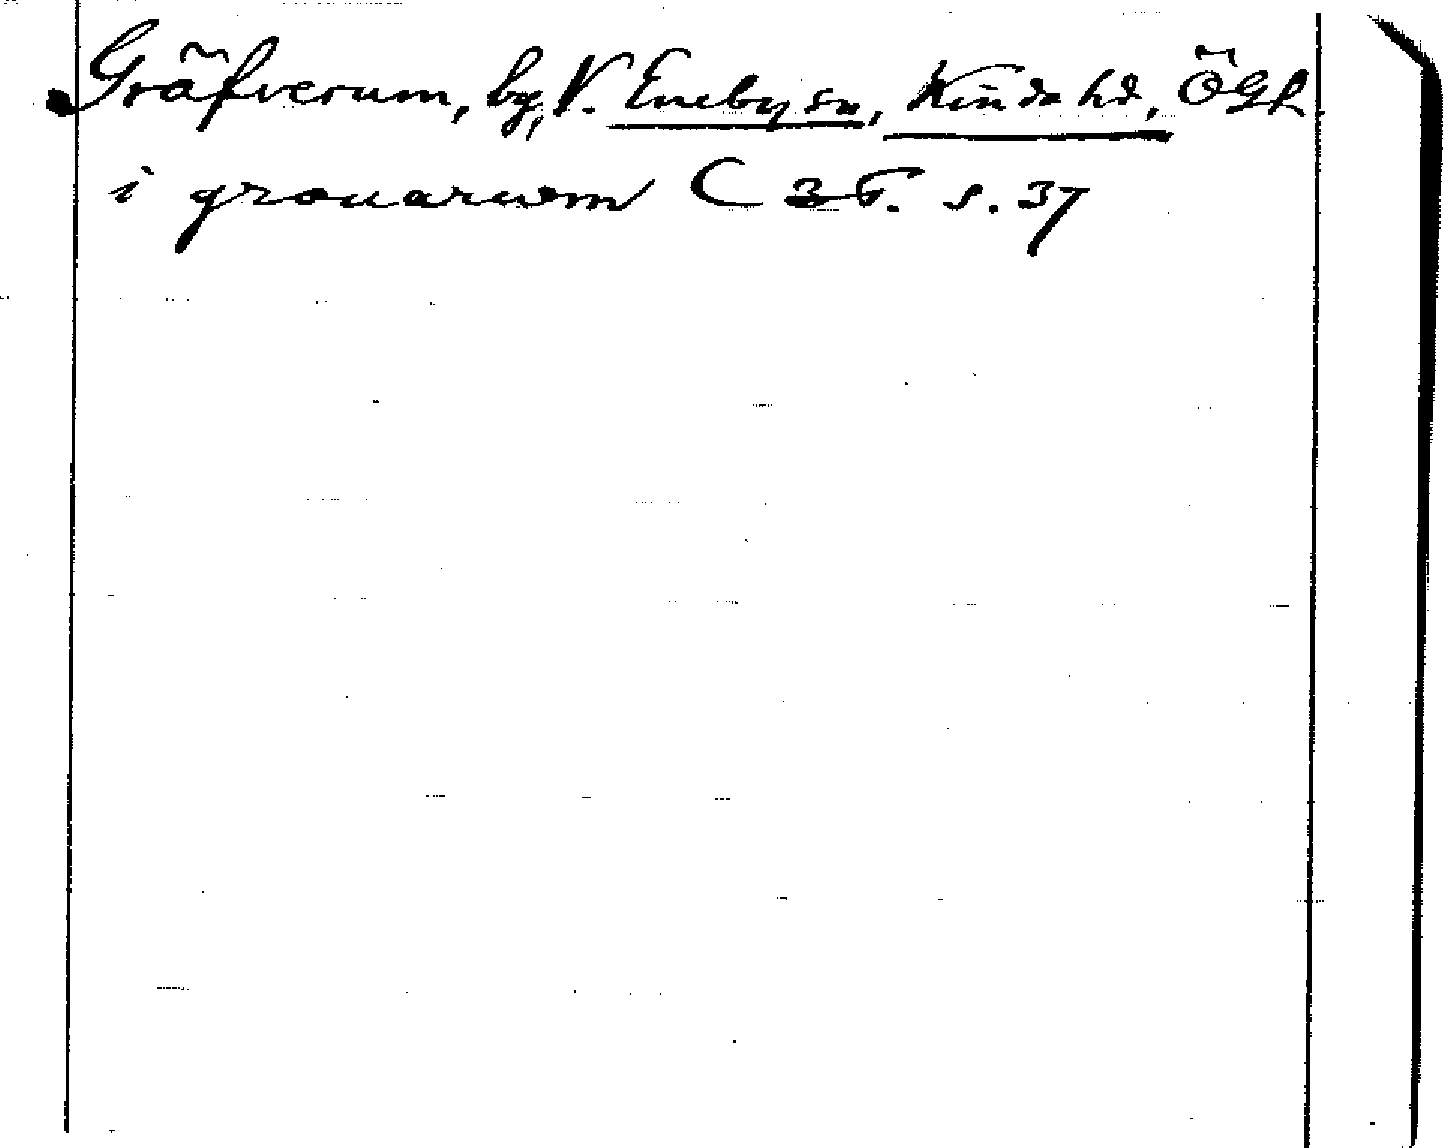 Gräfverum, by, V. Eneby sn, Kinda hd, ÖGL
i grouarwm C 36. s. 37